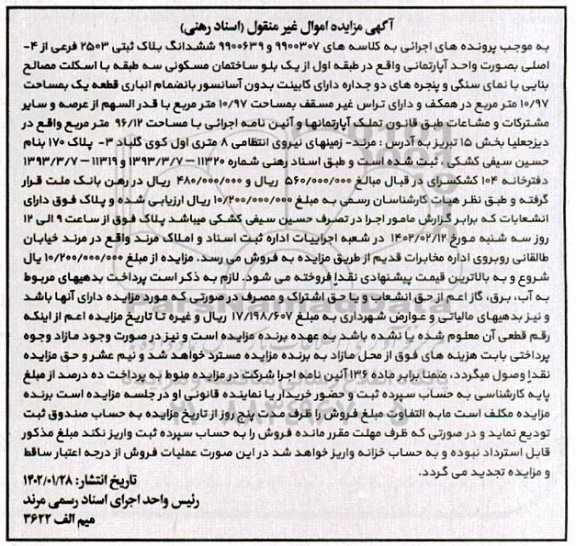 آگهی مزایده اموال غیر منقول (اسناد رهنی)
به موجب پرونده های اجرائی به کلاسه های ۹۹۰۰۳۰۷ و ۹۹۰۰۶۳۹ ششدانگ پلاک ثبتی ۲۵۰۳ فرعی از ۴-
اصلی بصورت واحد آپارتمانی واقع در طبقه اول از یک بلو ساختمان مسکونی سه طبقه با اسکلت مصالح
بنایی با نمای سنگی و پنجره های دو جداره دارای کابینت بدون آسانسور بانضمام انباری قطعه یک بمساحت
۱۰/۹۷ متر مربع در همکف و دارای تراس غیر مسقف بمساحت ۱۰/۹۷ متر مربع با قدر السهم از عرصه و سایر
مشترکات و مشاعات طبق قانون تملک آپارتمانها و آئین نامه اجرائی با مساحت ۹۶/۱۲ متر مربع واقع در
دیزجعلیا بخش ۱۵ تبریز به آدرس : مرند- زمینهای نیروی انتظامی ۸ متری اول کوی گلباد ۳- پلاک ۱۷۰ بنام
حسین سیفی کشکی، ثبت شده است و طبق اسناد رهنی شماره ۱۱۳۲۰ – ۱۳۹۳/۳/۷ و ۱۱۳۱۹ – ۱۳۹۳/۳/۷
دفترخانه ۱۰۴ کشکسرای در قبال مبالغ ۵۶۰/۰۰۰/۰۰۰ ریال و ۴۸۰/۰۰۰/۰۰۰ ریال در رهن بانک ملت قرار
گرفته و طبق نظر هیات کارشناسان رسمی به مبلغ ۱۰/۲۰۰/۰۰۰/۰۰۰ ریال ارزیابی شده و پلاک فوق دارای
انشعابات که برابر گزارش مامور اجرا در تصرف حسین سیفی کشکی میباشد پلاک فوق از ساعت ۹ الی ۱۲
روز سه شنبه مورخ ۱۴۰۲/۰۲/۱۲ در شعبه اجراییات اداره ثبت اسناد و املاک مرند واقع در مرند خیابان
طالقانی روبروی اداره مخابرات قدیم از طریق مزایده به فروش می رسد. مزایده از مبلغ ۱۰/۲۰۰/۰۰۰/۰۰۰ یال
شروع و به بالاترین قیمت پیشنهادی نقدا فروخته می شود. لازم به ذکر است پرداخت بدهیهای مربوط
به آب، برق، گاز اعم از حق انشعاب و یا حق اشتراک و مصرف در صورتی که مورد مزایده دارای آنها باشد
و نیز بدهیهای مالیاتی و عوارض شهرداری به مبلغ ۱۷/۱۹۸/۶۰۷ ریال و غیره تا تاریخ مزایده اعم از اینکه
رقم قطعی آن معلوم شده یا نشده باشد به عهده برنده مزایده است و نیز در صورت وجود مازاد وجوه
پرداختی بابت هزینه های فوق از محل مازاد به برنده مزایده مسترد خواهد شد و نیم عشر و حق مزایده
نقدا وصول میگردد، ضمنا برابر ماده ۱۳۶ آئین نامه اجرا شرکت در مزایده منوط به پرداخت ده درصد از مبلغ
پایه کارشناسی به حساب سپرده ثبت و حضور خریدار یا نماینده قانونی او در جلسه مزایده است برنده
مزایده مکلف است مابه التفاوت مبلغ فروش را ظرف مدت پنج روز از تاریخ مزایده به حساب صندوق ثبت
تودیع نماید و در صورتی که ظرف مهلت مقرر مانده فروش را به حساب سپرده ثبت واریز نکند مبلغ مذکور
قابل استرداد نبوده و به حساب خزانه واریز خواهد شد در این صورت عملیات فروش از درجه اعتبار ساقط
و مزایده تجدید می گردد.
تاریخ انتشار: ۱۴۰۲/۰۱/۲۸
رئیس واحد اجرای اسناد رسمی مرند
میم الف ۳۶۲۲